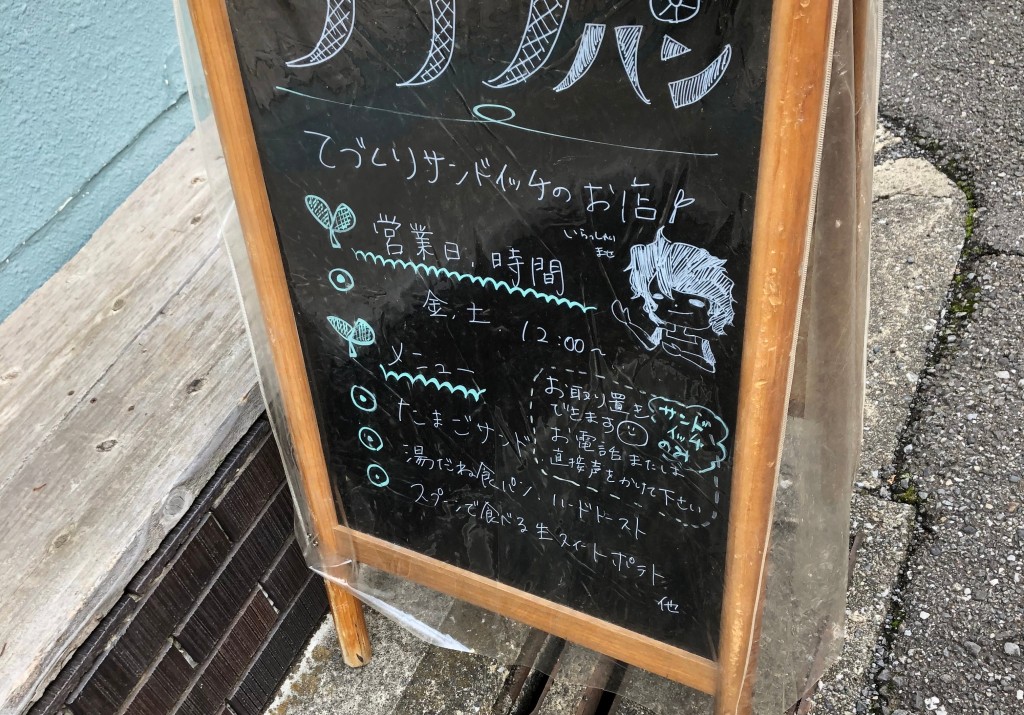 パン
てづくりサンドイッチのお店
いらっしゃい
ませ
営業日、時間
金、土 12:00~
メニュー
たまごサンド
湯だね食パン、ハードトースト
スプーンで食べる生スイートポテト
他
お取り置き
できます
お電話または
直接声をかけて下さい
サンド
イッチ
のみ